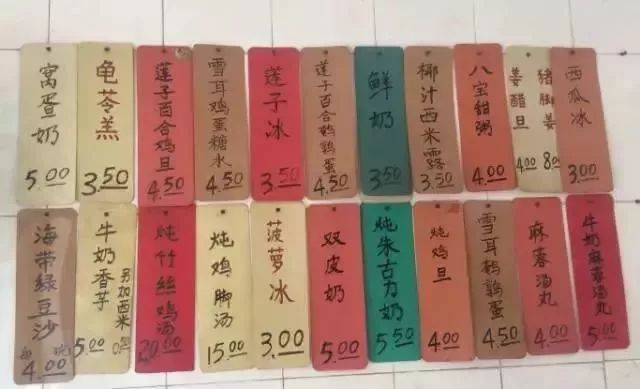 窝蛋奶
5.00
龟苓羔
3.50
莲子百合鸡旦
4.50
雪耳鸡蛋糖水
4.50
莲子冰
3.50
莲子百合鹌鹑蛋
4.50
鲜奶
3.50
椰汁西米露
3.50
八宝甜粥
4.00
姜醋旦
4.00
猪脚姜
8.00
西瓜冰
3.00
海带绿豆沙
每碗
4.00
牛奶香芋
5.00
另加西米
炖竹丝鸡汤
20.00
炖鸡脚汤
15.00
菠萝冰
3.00
双皮奶
5.00
炖朱古力奶
5.50
炖鸡旦
4.00
雪耳鹌鹑蛋
4.50
麻蓉汤丸
4.00
牛奶麻蓉汤丸
5.00